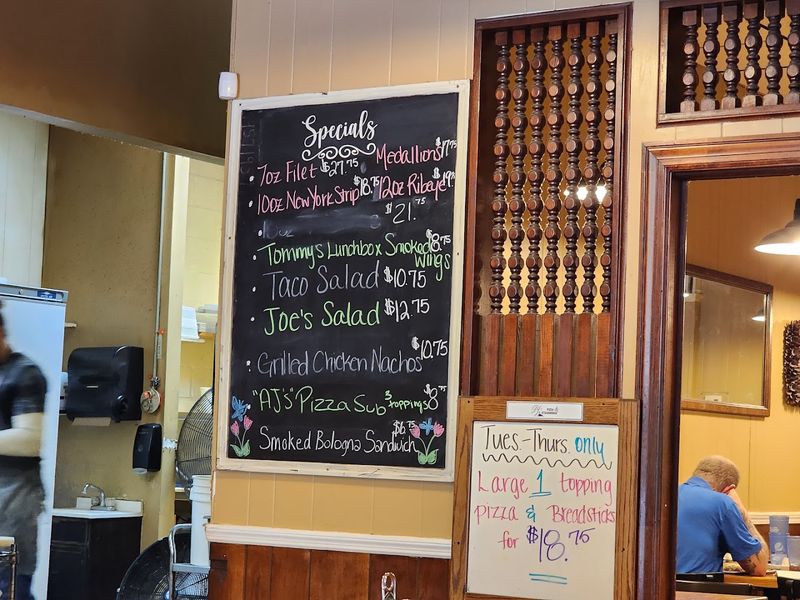 Specials
7oz Filet $27.75 Medallions $17.75
10oz New York Strip $18.75 12oz Ribeye $19.75
$21.75
Tommy's Lunchbox Smoked Wings $8.75
Taco Salad $10.75
Joe's Salad $12.75
Grilled Chicken Nachos $10.75
"AJ's" Pizza Sub 3 toppings $8.75
Smoked Bologna Sandwich $6.75
Tues.-Thurs. only
Large 1 topping
pizza & Breadsticks
for $18.75